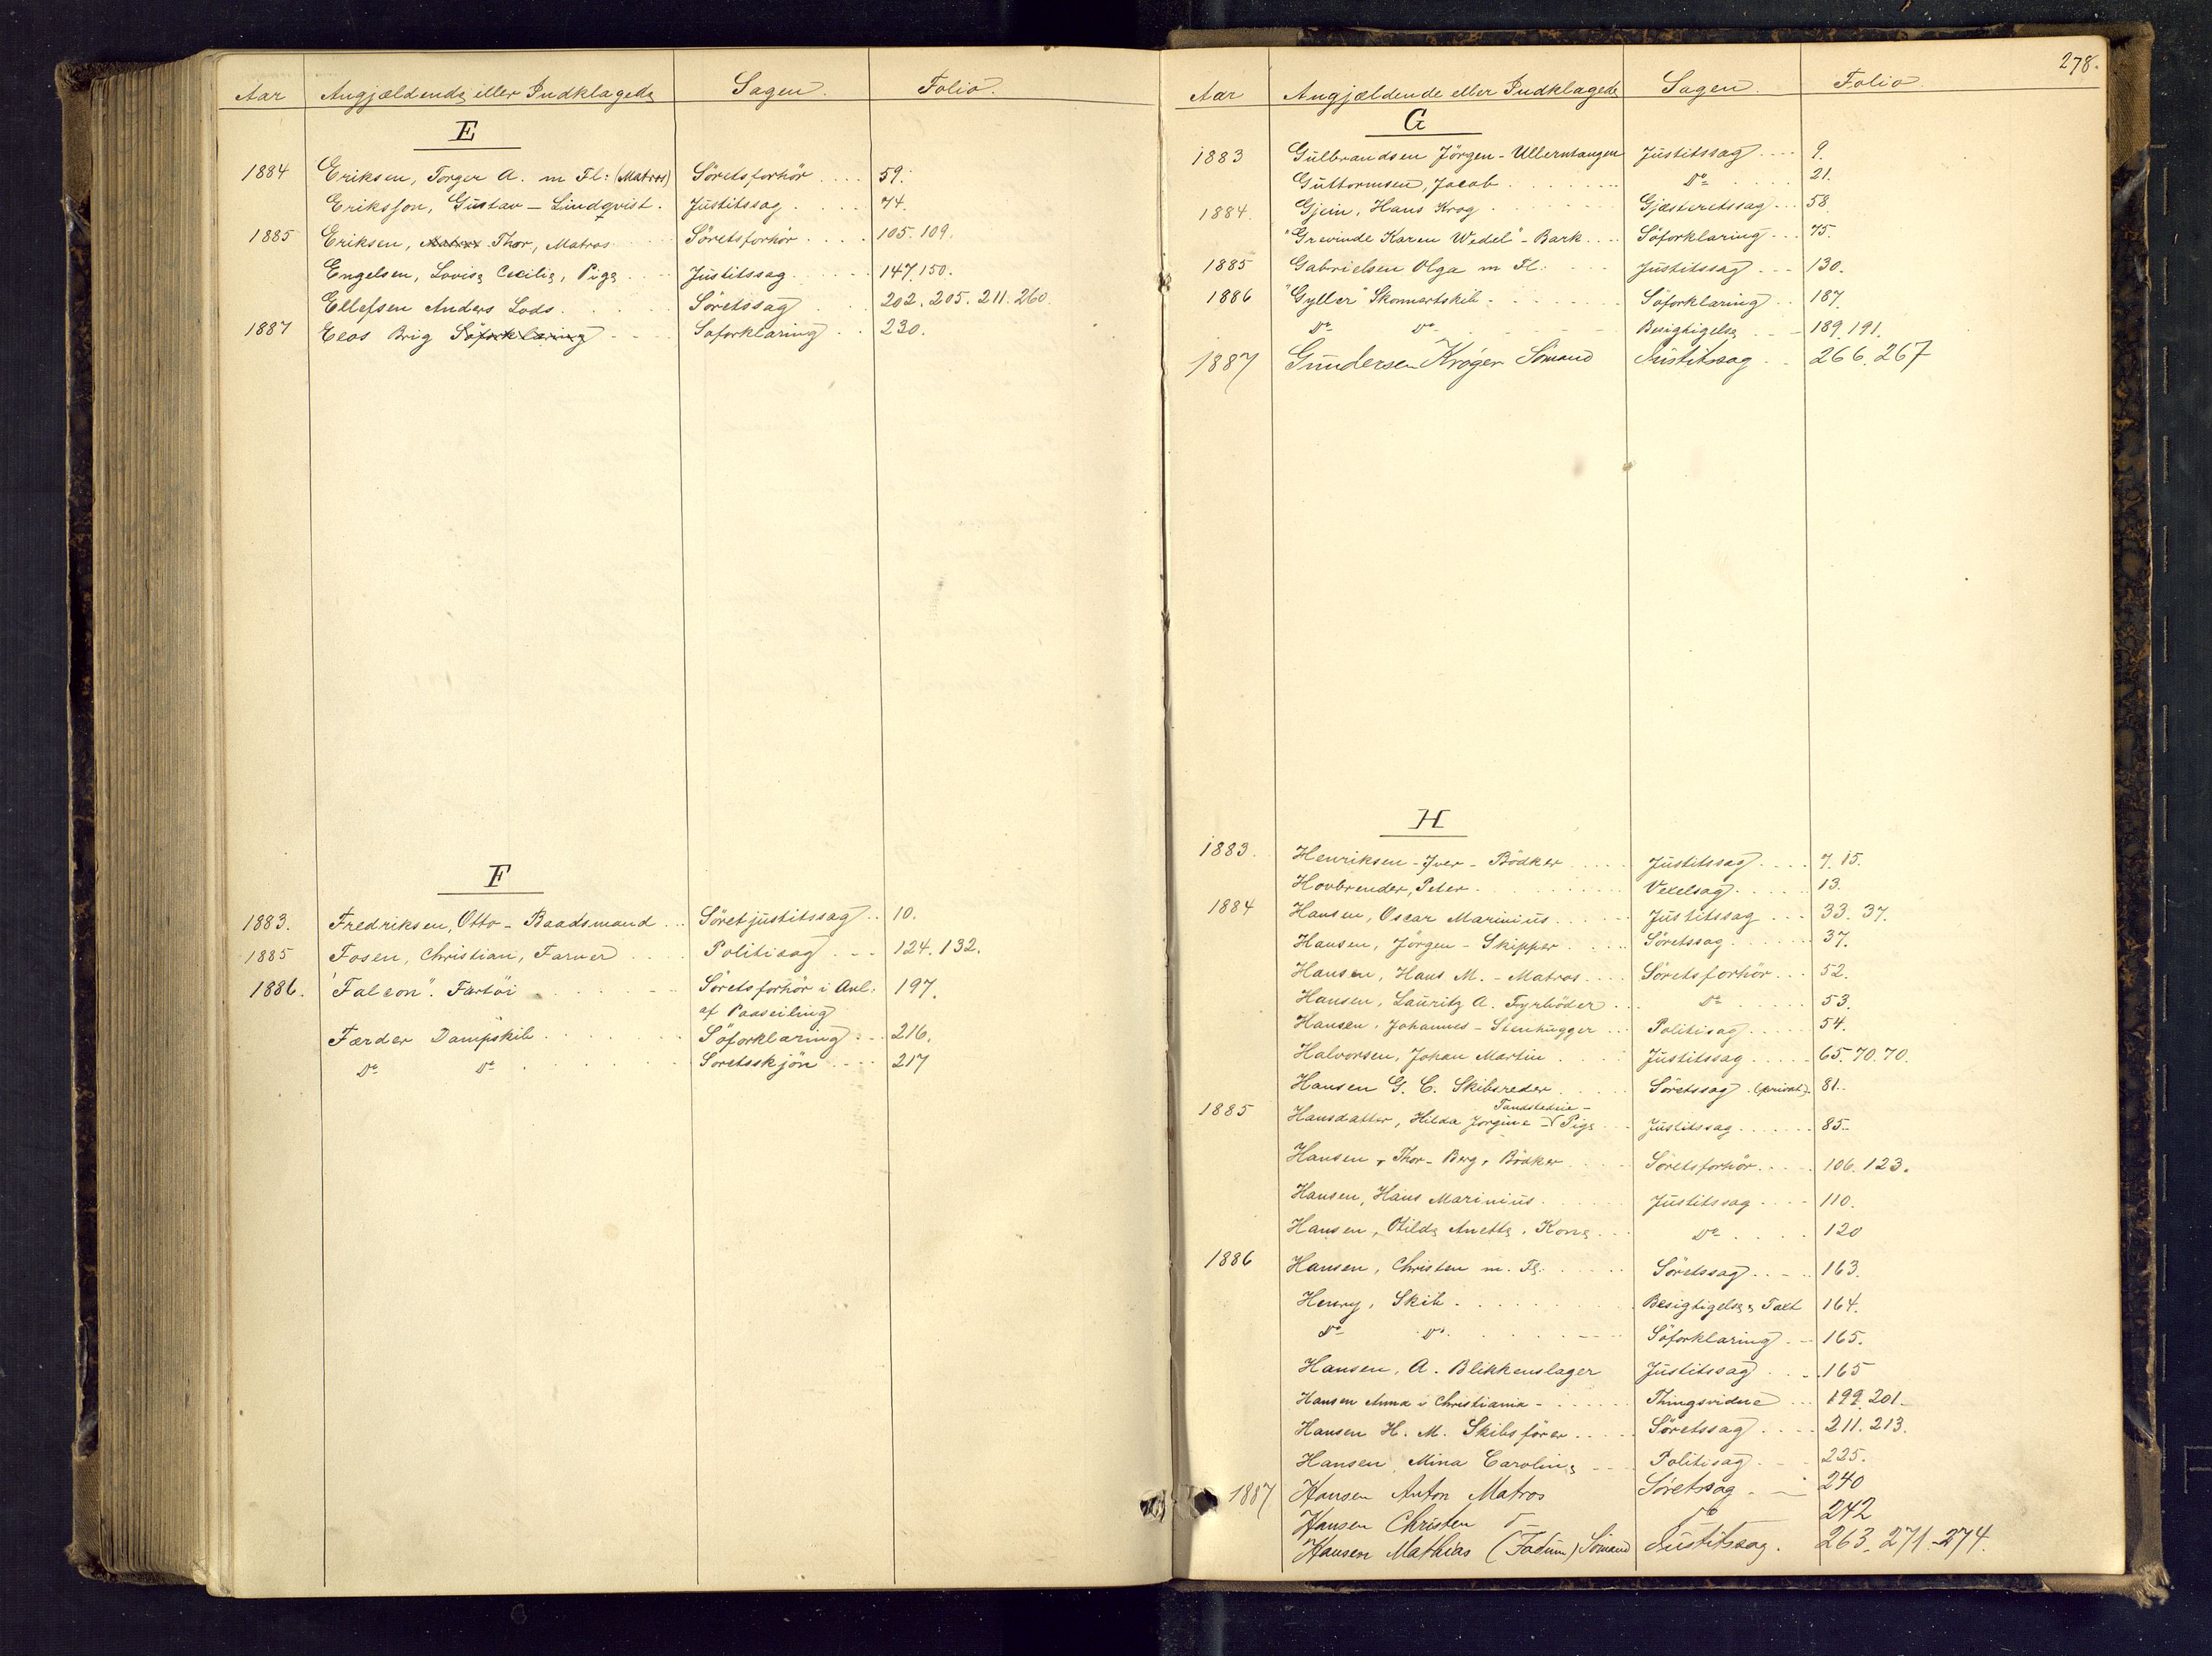 Aar Angjældende eller Indklagede Sagen. Folio.
E
1884 Eriksen, Torger A. m Fl: (Matros) Söretsforhör .... 59.
Eriksson, Gustav - Lindqvist. Justitssag .... 74.
1885 Eriksen, Matros Thor, Matros Söretsforhör .... 105. 109.
Engelsen, Lovise Cecilie, Pige .... Justitssag .... 147. 150.
Ellefsen Anders Lods .... Söretssag .... 202. 205. 211. 260
1887 Eeos Brig Söforklaring .... Söforklaring .. 230.
F
1883. Fredriksen, Otto - Baadsmand .. Söretjustitssag .. 10.
1885 Fosen, Christian, Farver .... Politisag ... 124. 132.
1886. "Falcon". Fartöi .... Söretsforhör i Anl: 197.
af Paaseiling
Færder Dampskib .... Söforklaring ... 216.
Do Do .... Söretsskjön .... 217
278.
Aar Angjældende eller Indklagede Sagen. Folio.
G
1883 Gulbrandsen Jörgen - Ullerntangen Justitssag .... 9.
Guttormsen, Jacob .... Do .... 21.
1884. Gjein, Hans Krog .... Gjæsteretssag ... 58.
"Grevinde Karen Wedel" - Bark .... Söforklaring ... 75.
1885 Gabrielsen Olga m Fl: ... Justitssag ... 130.
1886 "Gyller" Skonnertskib .... Söforklaring .. 187.
Do Do .... Besigtigelse ... 189. 191.
1887 Gundersen Kröger Sömand Justitssag .. 266. 267
H
1883. Henriksen - Iver - Bödker .... Justitssag .... 7. 15.
Hovbrender, Peter .... Vexelsag .... 13.
1884 Hansen, Oscar Marinius .... Justitssag ... 33. 37.
Hansen, Jörgen - Skipper .... Söretssag .... 37.
Hansen, Hans M. - Matros .... Söretsforhör ... 52.
Hansen, Lauritz A. Fyrböder ... Do .... 53.
Hansen, Johannes - Stenhugger ... Politisag .... 54.
Halvorsen, Johan Martin .... Justitssag .... 65. 70. 70.
Hansen G. C. Skibsreder .... Söretssag (privat). 81.
Tandstedrie -
1885 Hansdatter, Hilda Jorgine - Pige ... Justitssag .... 85.
Hansen, Thor - Berg, Bödker .... Söretsforhör .... 106. 123.
Hansen, Hans Marinius .... Justitssag .... 110.
Hansen, Otilde Anette, Kone ... Do .... 120
1886 Hansen, Christen m. Fl. .... Söretssag .... 163.
Henry, Skib .... Besigtigelse, Taxt 164.
Do Do .... Söforklaring .. 165.
Hansen, A. Blikkenslager Justitssag .. 165
Hansen Anna i Christiania .... Thingsvidne ... 199. 201.
Hansen H. M. Skibsförer .... Söretssag .... 211. 213.
Hansen Mina Caroline ... Politisag ... 225.
1887 Hansen Anton Matros Söretssag .. 240
Hansen Christen do do 242
Hansen Mathias (Fadum) Sömand Justitssag. 263. 271 - 274.